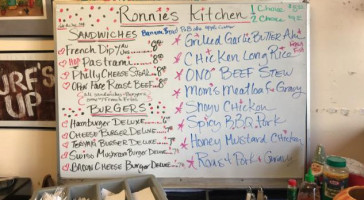 Ronnie's Kitchen
1 Choice
2 Choice
SANDWICHES
French Dip
Hot Pastrami
Philly Cheese Steak
Open Face Roast Beef
All sandwiches
French Fries
BURGERS
Hamburger Deluxe
Cheese Burger Deluxe
Teriyaki Burger Deluxe
Swiss Mushroom Burger Deluxe
Bacon Cheese Burger Deluxe
Grilled Garlic Butter Ahi
Chicken Long Rice
Ono Beef Stew
Mom's Meatloaf & Gravy
Shoyu Chicken
Spicy B.B.Q. Pork
Honey Mustard Chicken
Roast Pork & Gravy
SURF'S
UP